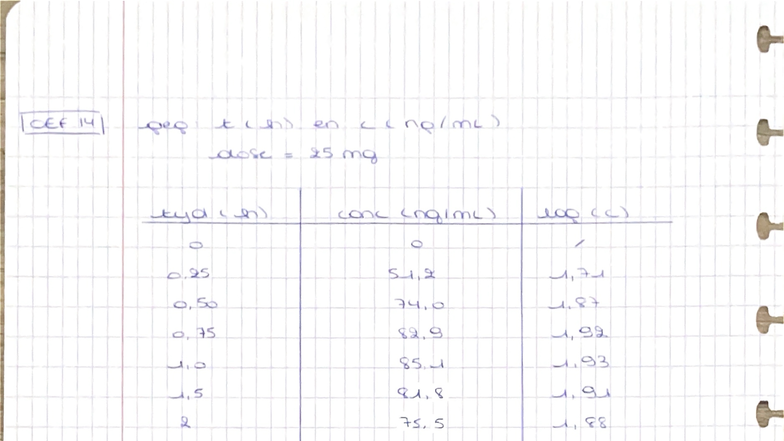 OEF 14 geg: t(h) en C(ng/mL)
dosc = 25 mg
tyd (h) conc (ng/mL) log (C)
0 0 /
0,25 51,2 1,71
0,50 74,0 1,87
0,75 82,9 1,92
1,0 85,1 1,93
1,5 81,8 1,91
2 75,5 1,88